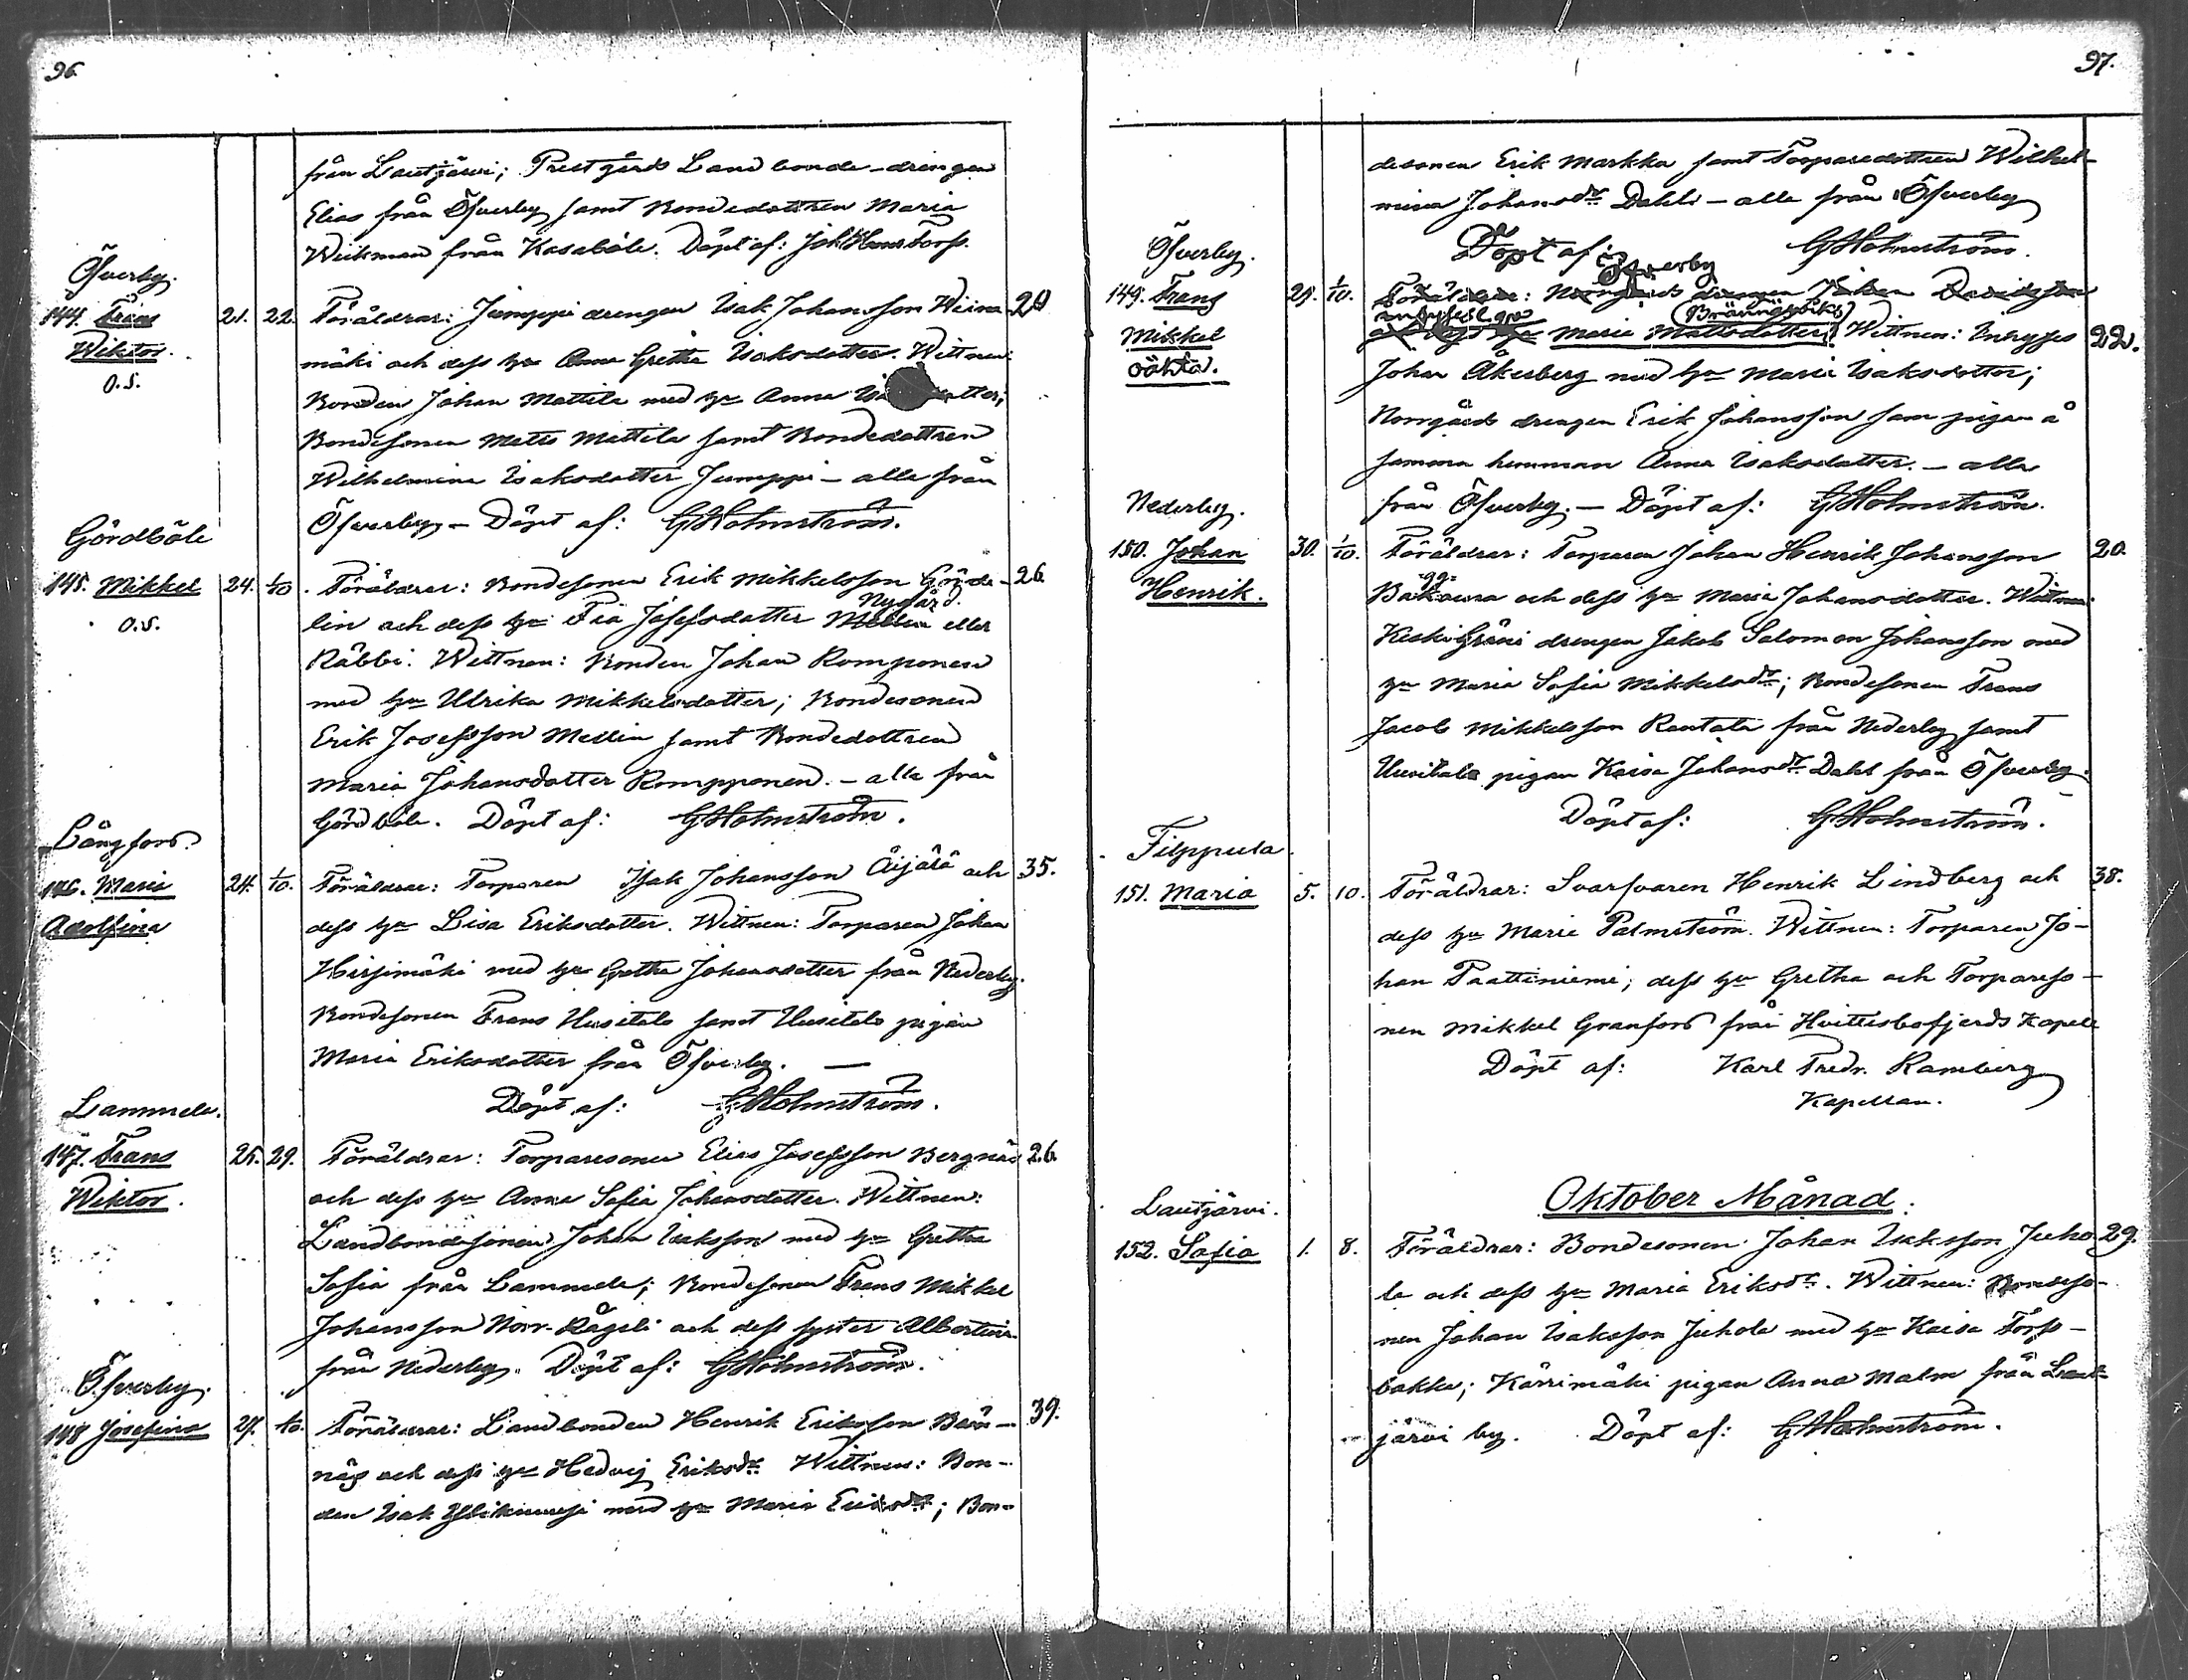 96.
från Lautjärvi; Prestgårds Landbonde-drengen
Elias från Öfverby samt Bondedottren Maria
Weikman från Kasaböle. Döpt af: Joh
Öfverby.
144. Frans 21. 22. Föräldrar: Jumppi drengen Isak Johansson Wiina- 20
Wiktor.
mäki och dess hu Anna Gretha Isaksdotter. Wittnen:
O.S.
Bonden Johan Mattila med hu Anna
Bondesonen Matts Mattila samt Bondedottren
Wilhelmina Isaksdotter Jumppi – alla från
Öfverby – Döpt af: GHolmström.
Gördböle
145. Mikkel 24. 1/10. Föräldrar: Bondesonen Erik Mikkelsson Görde- 26.
Nygård.
lin och dess hu Fia Josefsdotter Mellin eller
O.S.
Räbbi. Wittnen: Bonden Johan Romponen
med hu Ulrika Mikkelsdotter; Bondesonen
Erik Josefsson Mellin samt Bondedottren
Maria Johansdotter Rompponen. – alla från
Gördböle. Döpt af: GHolmström.
Långfors.
146. Maria 24. 1/10. Föräldrar: Torparen Isak Johansson Äijälä och 35.
Adolfina
dess hu Lisa Eriksdotter. Wittnen: Torparen Johan
Hirsimäki med hu Gretha Johansdotter från Nederby.
Bondesonen Frans Uusitalo samt Uusitalo pigan
Maria Eriksdotter från Öfverby. —
Döpt af: GHolmström.
Lammela.
147. Frans 25. 29. Föräldrar: Torparesonen Elias Josefsson Bergnäs 26.
Wiktor.
och dess hu Anna Sofia Johansdotter. Wittnen:
Landbondesonen Johan Isaksson med hu Gretha
Sofia från Lammela; Bondesonen Frans Mikkel
Johansson Norr-Rågeli och dess syster Albertina
från Nederby. Döpt af: GHolmström.
Öfverby.
148 Josefina 29. 1/10. Föräldrar: Landbonden Henrik Eriksson Bär- 39.
näs och dess hu Hedvig Eriksdr. Wittnen: Bon-
den Isak med hu Maria Eriksdr; Bon-
97.
desonen Erik Markka samt Torparedottren Wilhel-
mina Johansdr. Dahls – alla från Öfverby
Döpt af GHolmström.
Öfverby.
i Öfverby
149. Frans 29. 1/10. Föräldrar: Norrgårds drengen Johan Davidsson
Mikkel
Maria Mattsdotter (Brännbäck) Wittnen: Inhyses 22.
oäkta.
Johan Åkerberg med hu Maria Isaksdotter;
Norrgårds drengen Erik Johansson sam pigan å
samma hemman Anna Isaksdotter. – alla
från Öfverby. – Döpt af: GHolmström.
Nederby.
150. Johan 30. 1/10. Föräldrar: Torparen Johan Henrik Johansson 20.
Henrik.
och dess hu Maria Johansdotter. Wittnen:
Keski Gräni drengen Jakob Salomon Johansson med
hu Maria Sofia Mikkelsdr.; Bondesonen Frans
Jacob Mikkelsson Rantala från Nederby samt
Uusitalo pigan Kaisa Johansdr. Dahl från Öfverby.
Döpt af: GHolmström.
Filppula
151. Maria 5. 10. Föräldrar: Svarfvaren Henrik Lindberg och 38.
dess hu Maria Palmström. Wittnen: Torparen Jo-
han Paattiniemi; dess hu Gretha och Torpareso-
nen Mikkel Granfors från Hvittisbofjerds Kapell
Döpt af: Karl Fredr. Ramberg
Kapellan.
Oktober Månad.
Lautjärvi.
152. Sofia 1. 8. Föräldrar: Bondesonen Johan Isaksson Juho 29.
la och dess hu Maria Eriksdr. Wittnen: Bondeso-
nen Johan Isaksson Juhola med hu Kaisa Torfs-
bakka; Kärrimäki pigan Anna Malm från Laut-
järvi by. Döpt af: GHolmström.